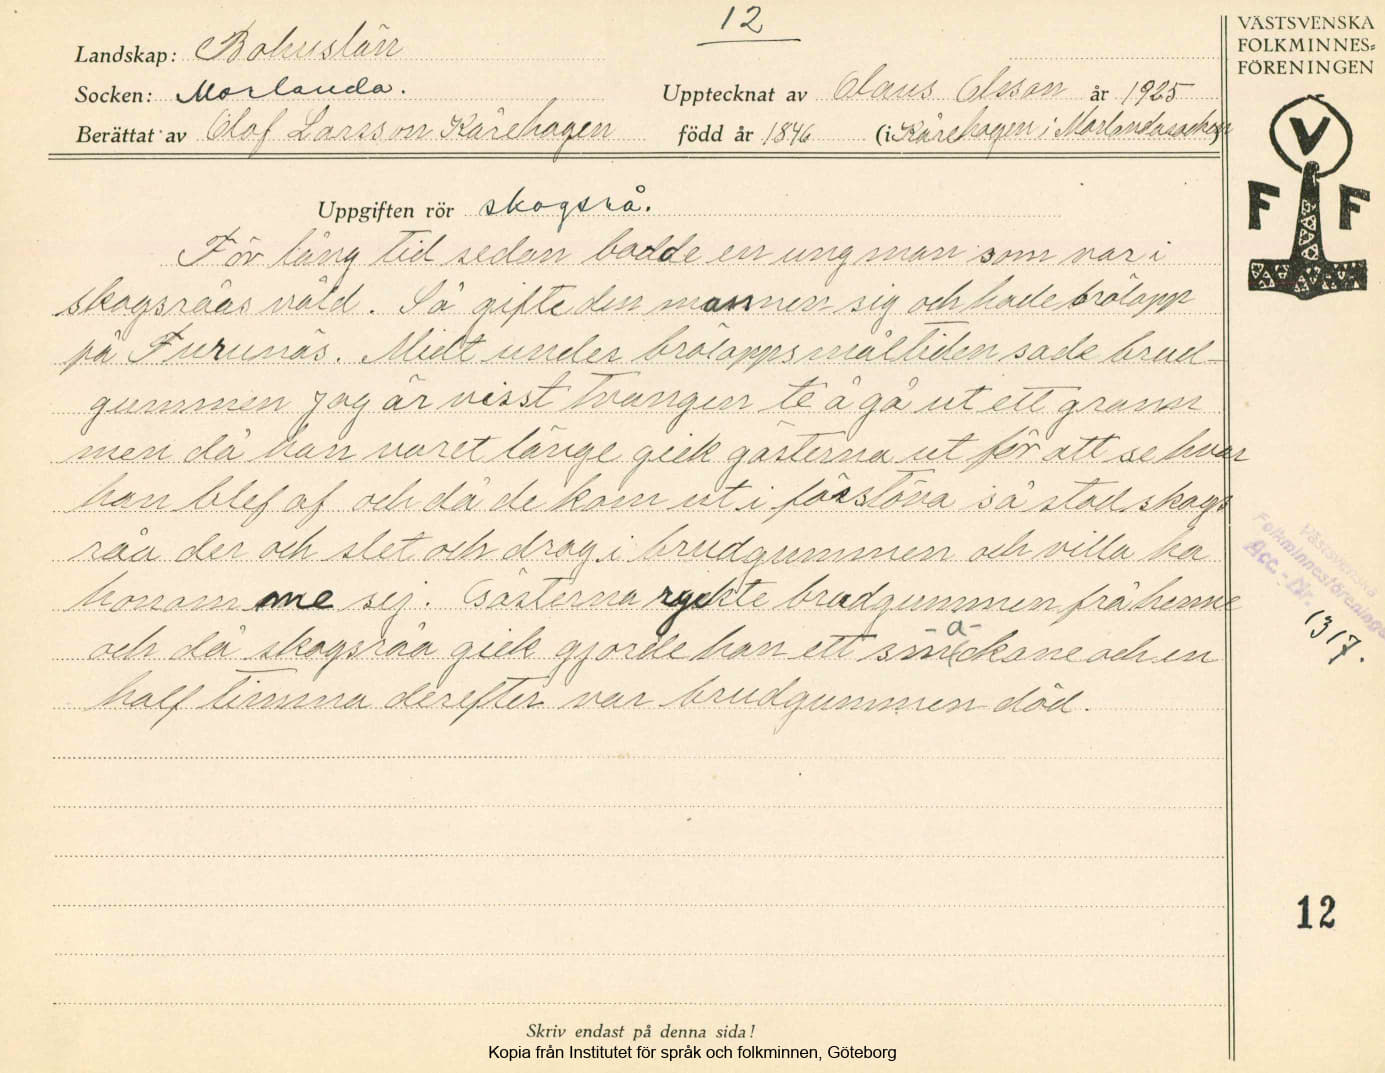 12
VÄSTSVENSKA
FOLKMINNES-
FÖRENINGEN
Landskap: Bohuslän
Socken: Morlanda.
Upptecknat av Claus Olsson år 1925
Berättat av Olof Larsson Kärehogen född år 1846 (i Kärehogen i Morlandasocken)
V
F F
Uppgiften rör skogsrå.
För lång tid sedan bodde en ung man som var i
skogsråas våld. Så gifte den mannen sig och hade brölapp
på Furunäs. Midt under brölappsmåltiden sade brud-
gummen jag är visst tvangen te å gå ut ett grann
men då han varet länge gick gästerna ut för att se hvar
han blef af och då de kom ut i farstöva så stod skogs
råa der och slet och drog i brudgummen och villa ha
honom me sej. Gästerna ryckte brudgummen frå henne
och då skogsråa gick gjorde han ett småckane och en
half timma derefter var brudgummen död.
Västsvenska
Folkminnesföreningen
Acc.-Nr.
1317.
12
Skriv endast på denna sida!
Kopia från Institutet för språk och folkminnen, Göteborg